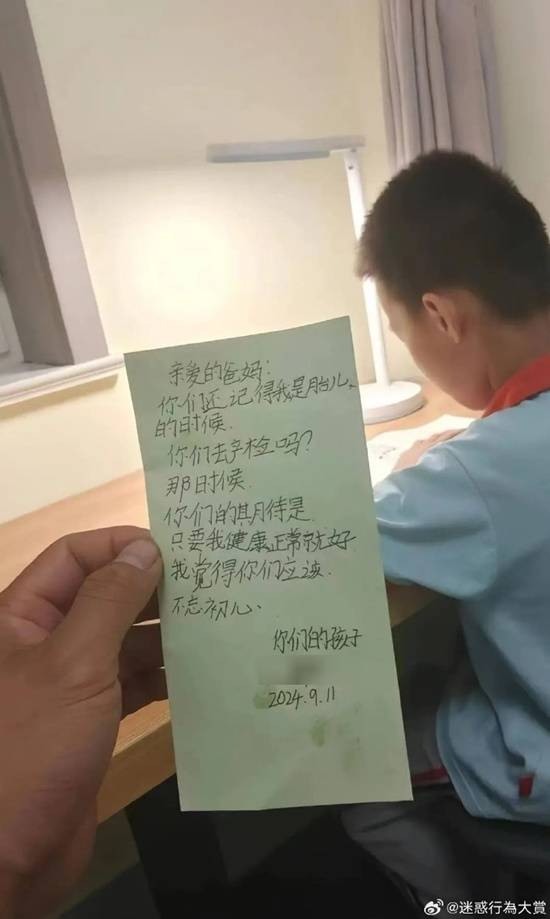 亲爱的爸妈:
你们还记得我是胎儿、
的时候.
你们去产检吗?
那时候.
你们的期待是.
只要我健康正常就好
我觉得你们应该.
不忘初心、
你们的孩子
2024.9.11
@迷惑行為大賞